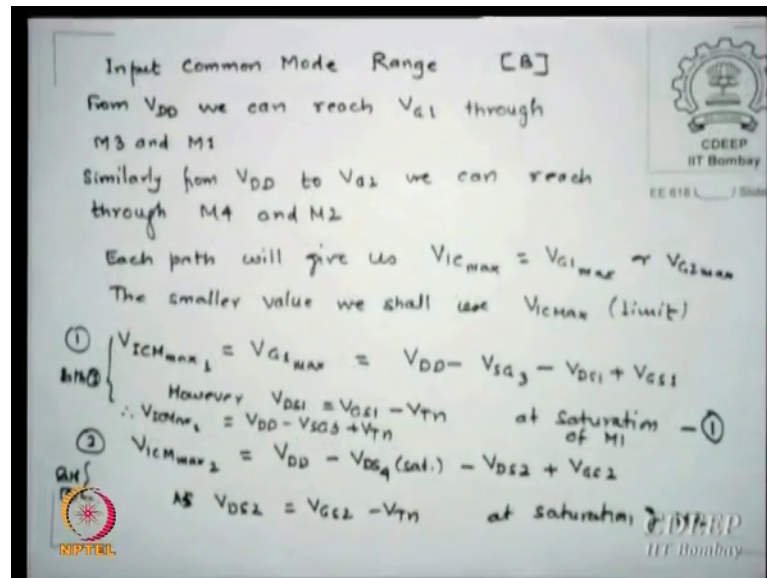 Input Common Mode Range [B]
CDEEP
IIT Bombay
EE 618 L___ / Slide
From VDD we can reach VG1 through
M3 and M1
Similarly from VDD to VG2 we can reach
through M4 and M2
Each path will give us VICmax = VG1max or VG2max
The smaller value we shall use VICMAX (limit)
① VICMmax1 = VG1max = VDD - VSG3 - VDS1 + VGS1
However VDS1 = VGS1 - VTN at saturation of M1 - ①
∴ VICMmax1 = VDD - VSG3 + VTN
② VICMmax2 = VDD - VDS4 (sat.) - VDS2 + VGS2
As VDS2 = VGS2 - VTN at saturation
NPTEL
CDEEP
IIT Bombay